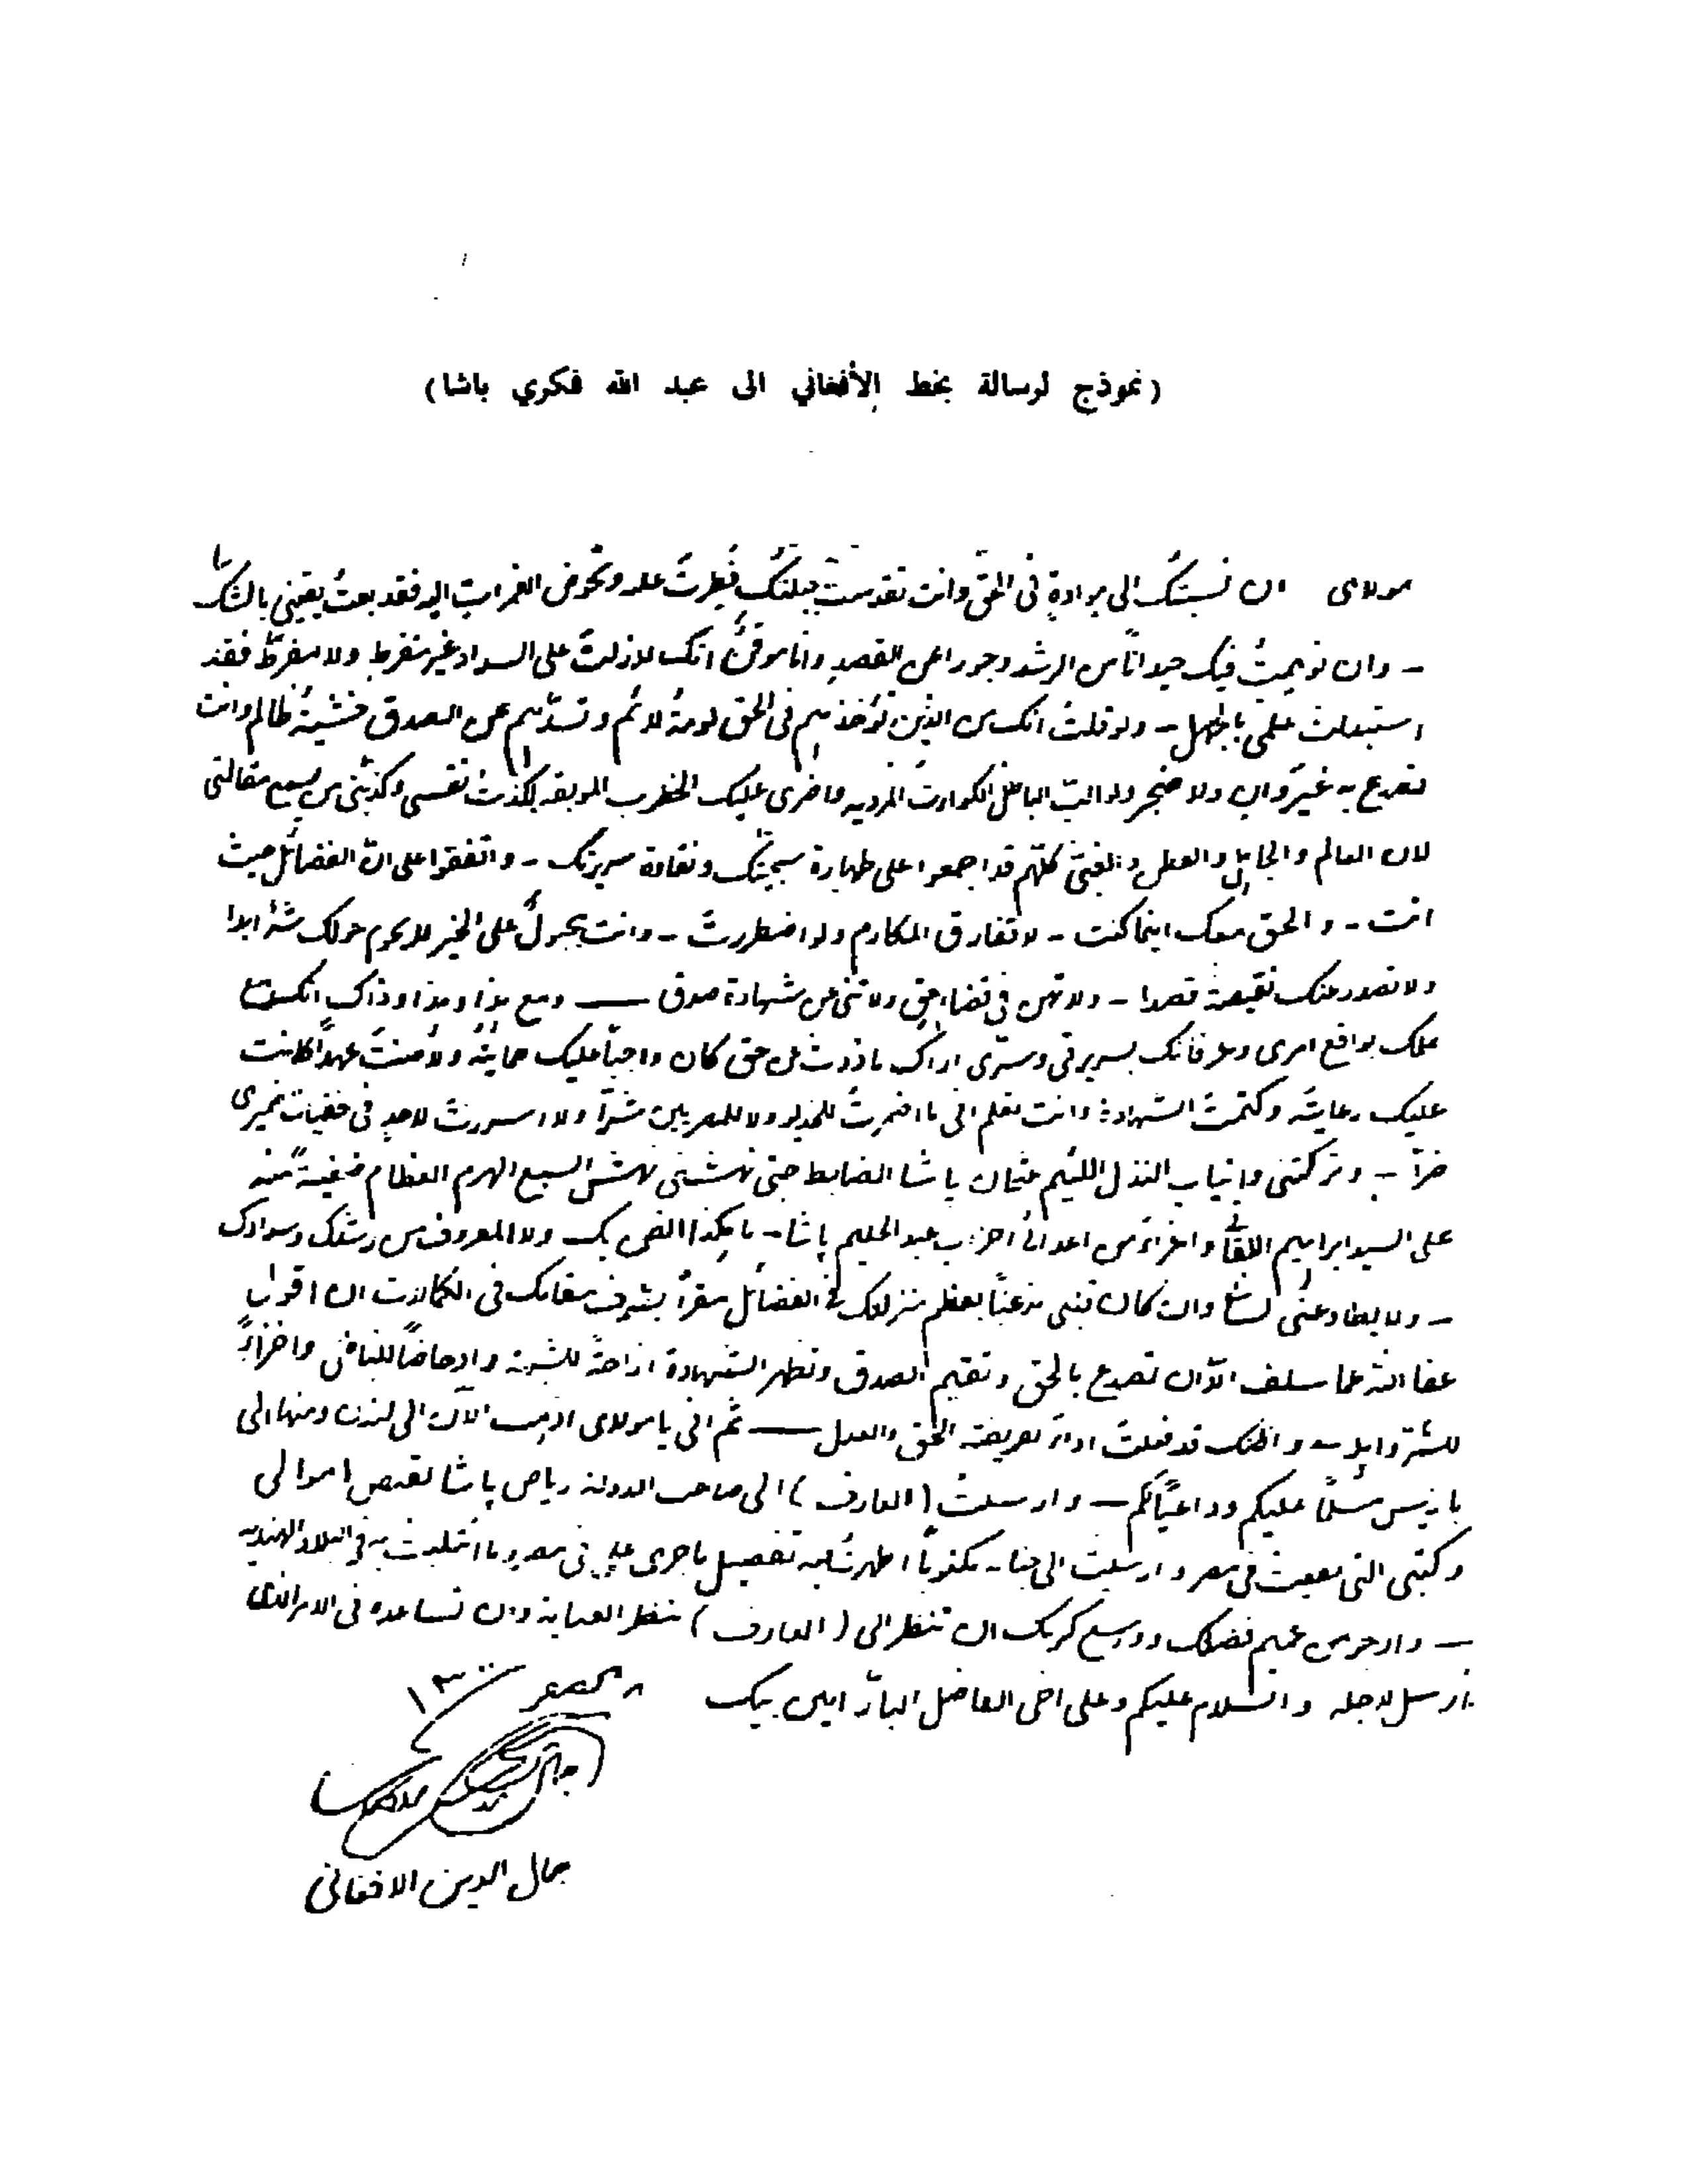 (نموذج لرسالة بخط الأفغاني الى عبد الله فكري باشا)
مولاى ان نسبتك الى موادة فى الحق وانت تقدست جبلتك فطرت عليه وتخوض الغمرات اليه فقد بعت يقينى بالشك
- وان توهمت فيك حيدانا من الرشد وجورا عن القصد وانا موقن انك لازلت على السداد غير مفرط ولا مفرط فقد
استبدلت علمى بالجهل - ولو قلت انك من الذين تؤخذهم فى الحق لومة لائم وتصدهم عن الصدق خشية ظالم وانت
تصدع به غير وان ولا ضجر ولو الب الباطل الكوارث المردية واضرى عليك الخطوب الموبقة لكذبت نفسى وكذبنى من يسمع مقالتى
لان العالم والجاهل والفطن والغبى كلهم قد اجمعوا على طهارة سجيتك ونقاوة سريرتك - واتفقوا على ان الفضائل حيث
انت - والحق معك اينما كنت - لا تفارق المكارم ولو اضطررت - وانت مجبول على الخير لا يحوم حولك شر ابدا
ولا تصدر عنك نقيصة قصدا - ولا تهن فى قضاء حق ولا تنى عن شهادة صدق — ومع هذا وهذا وذاك انك مع
علمك بواقع امرى وعرفانك بسريرتى وسرى اراك ما ذدت عن حق كان واجبا عليك حمايته ولا صنت عهدا كانت
عليك رعايته وكتمت الشهادة وانت تعلم انى ما اضمرت للخديو ولا للمصريين شرا ولا اسررت لاحد فى خفيات ضميرى
ضرا - وتركتنى وانياب النذل اللئيم عثمان باشا الضابط حتى نهشنى نهش السبع الهرم العظام ضغينة منه
على السيد ابراهيم اللقانى واغراء من اعدائى احزاب عبد الحليم باشا - ما هكذا الظن بك ولا المعروف من رشدك وسدادك
- ولا يطاوعنى لسانى وان كان قلبى مذعنا بعظم منزلتك فى الفضائل مقرا بشرف مقامك فى الكمالات ان اقول
عفا الله عما سلف الا ان تصدع بالحق وتقيم الصدق وتظهر الشهادة ازاحة للشبهة وادحاضا للباطل واخزاء
للشر واهله - واظنك قد فعلت اداء لفريضة الحق والعدل — ثم انى يا مولاى اذهب الآن الى لندن ومنها الى
باريس مسلما عليكم وداعيا لكم - وارسلت (العارف) الى صاحب الدولة رياض باشا لقبض اموالى
وكتبى التى بقيت فى مصر وارسلت الى جنابه مكتوبا اظهرت به تفصيل ما جرى على فى مصر وما ابتليت به فى البلاد الهندية
- وارجو من عميم فضلك ووسيع كرمك ان تنظر الى (العارف) بنظر العناية وان تساعده فى الامر الذى
ارسل لاجله والسلام عليكم وعلى اخى الفاضل البار امين بيك
٨ صفر ١٣٠٠
جمال الدين الافغانى